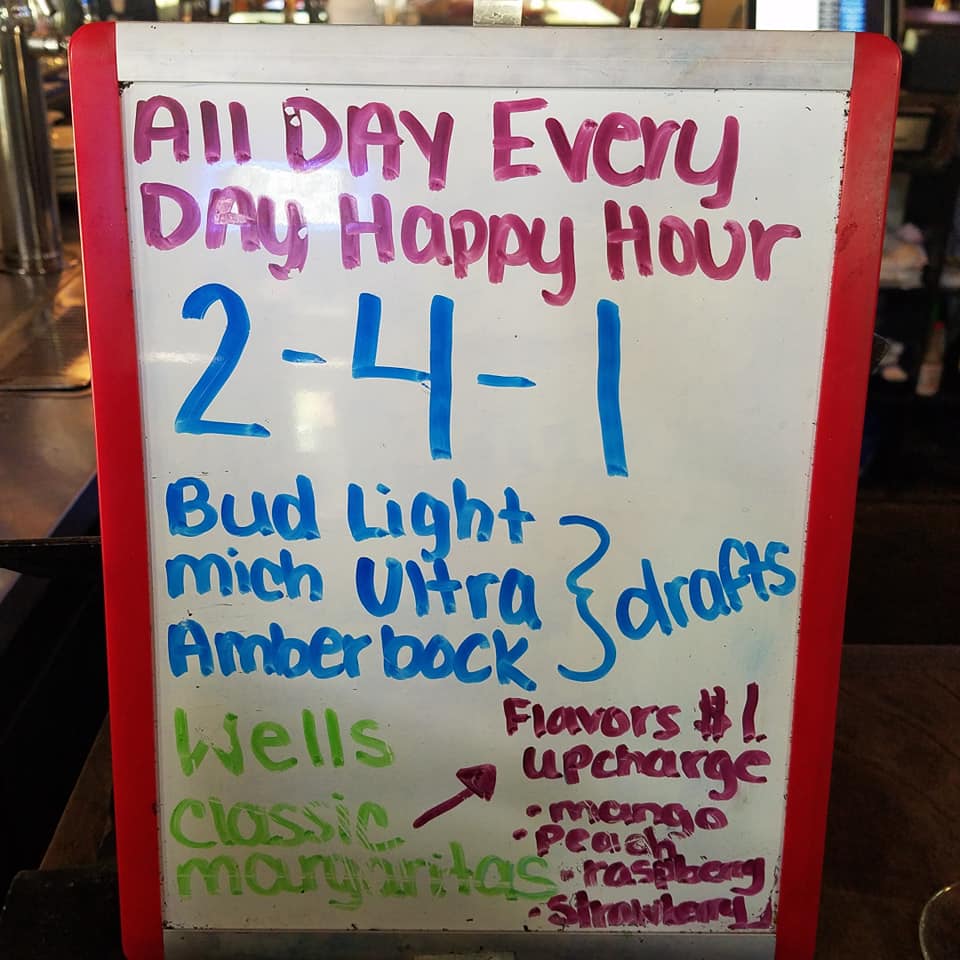 All DAy Every
DAy Happy Hour
2-4-1
Bud Light
mich Ultra
Amberbock
} drafts
Wells
classic
margaritas
Flavors #1
upcharge
• mango
• Peach
• raspberry
• Strawberry